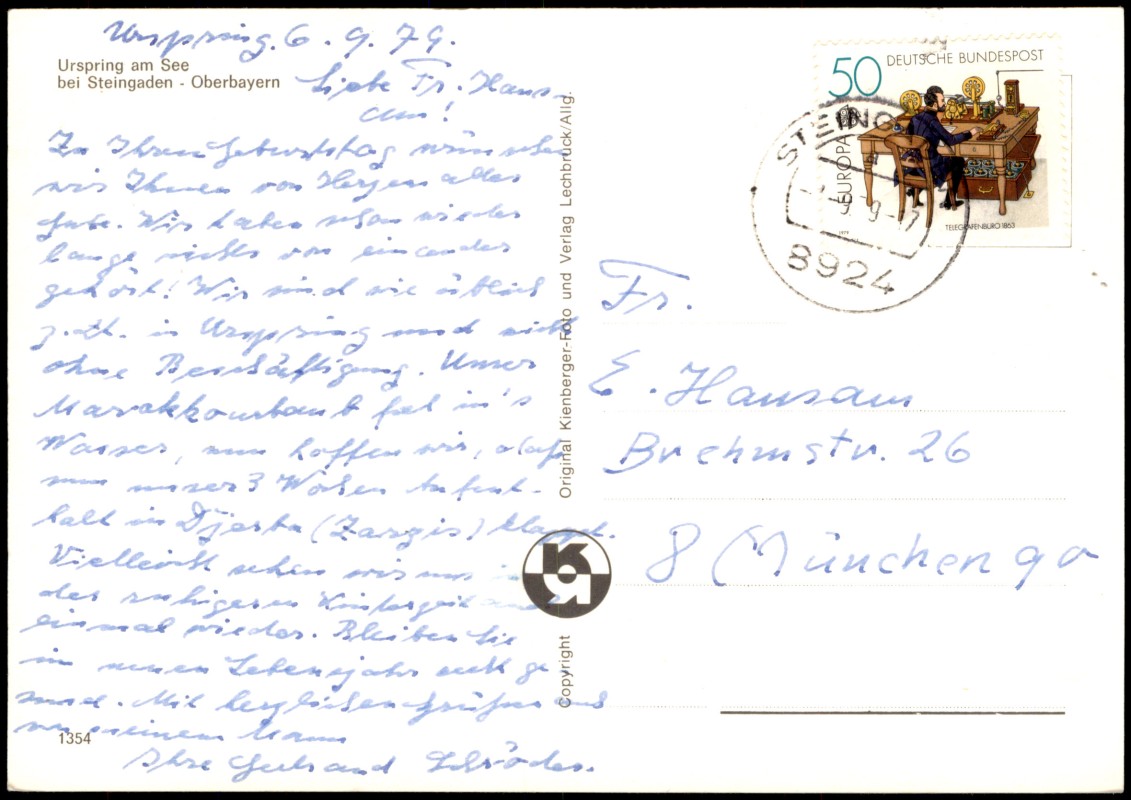 Urspring, 6. 9. 79.
Urspring am See
bei Steingaden - Oberbayern
Liebe Fr. Hans-
am!
Zu Ihren Geburtstag wünschen
wir Ihnen von Herzen alles
Gute. Wir haben schon wieder
lange nichts von einander
gehört! Wir sind wie üblich
z.Zt. in Urspring und nicht
ohne Beschäftigung. Unser
Marokkourlaub fiel in's
Wasser, nun hoffen wir, daß
nun unser 3 Wochen Aufent-
halt in Djerba (Zarzis) klappt.
Vielleicht sehen wir uns in
der ruhigeren Winterzeit
einmal wieder. Bleiben Sie
im neuen Lebensjahr recht ge
sund. Mit herzlichen Grüßen auch
von meinem Mann
Ihre Schröder.
1354
Original Kienberger-Foto und Verlag Lechbruck/Allg.
Copyright
DEUTSCHE BUNDESPOST
50
EUROPA
TELEGRAFENBÜRO 1863
1979
STEING
9
8924
Fr.
E. Hansam
Brehmstr. 26
8 München 90